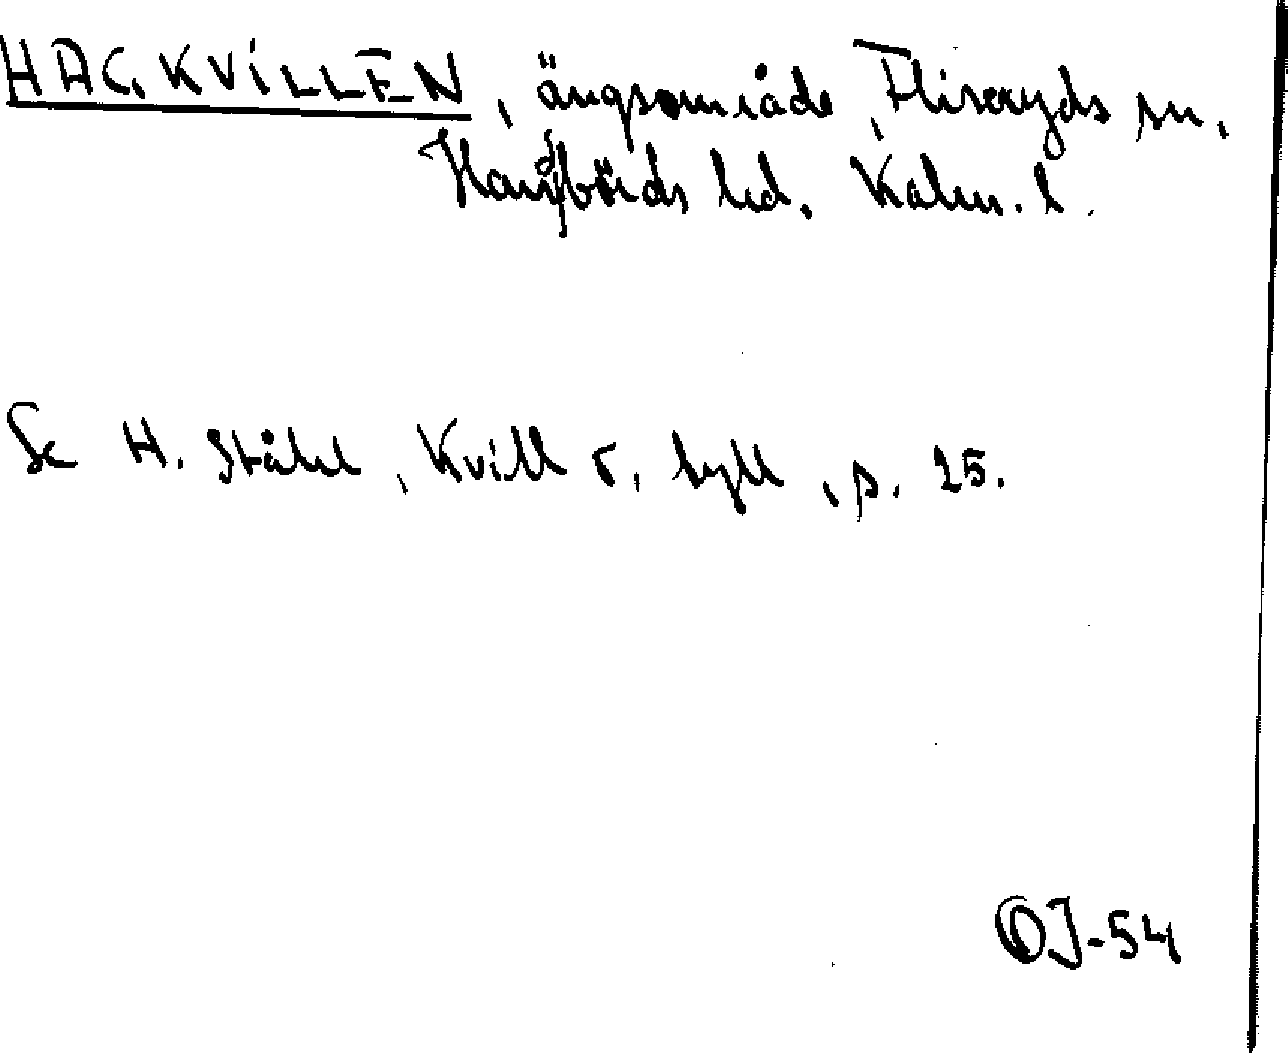 HAGKVILLEN, ängsområde, Fliseryds sn,
Handbörds hd, Kalm. l.
Se H. Ståhl, Kvill o, tyll, p. 25.
OJ-54